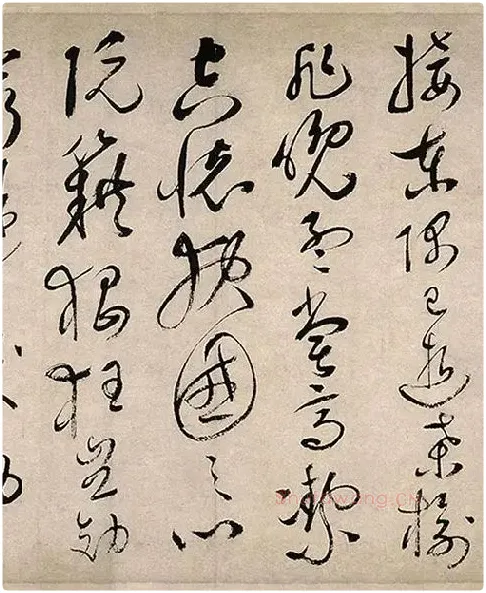 接東隅已逝桑榆
非晚孟嘗高潔
空懷報國之心
阮籍猖狂豈効